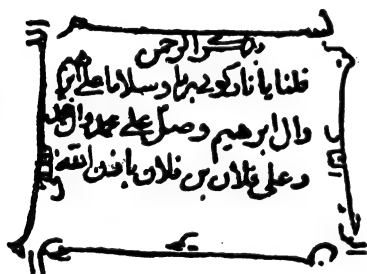 ذكر الرحمن
قلنا يا نار كوني بردا وسلاما على ابرهيم
وال ابرهيم وصل على محمد وال محمد
وعلى فلان بن فلان باذن الله